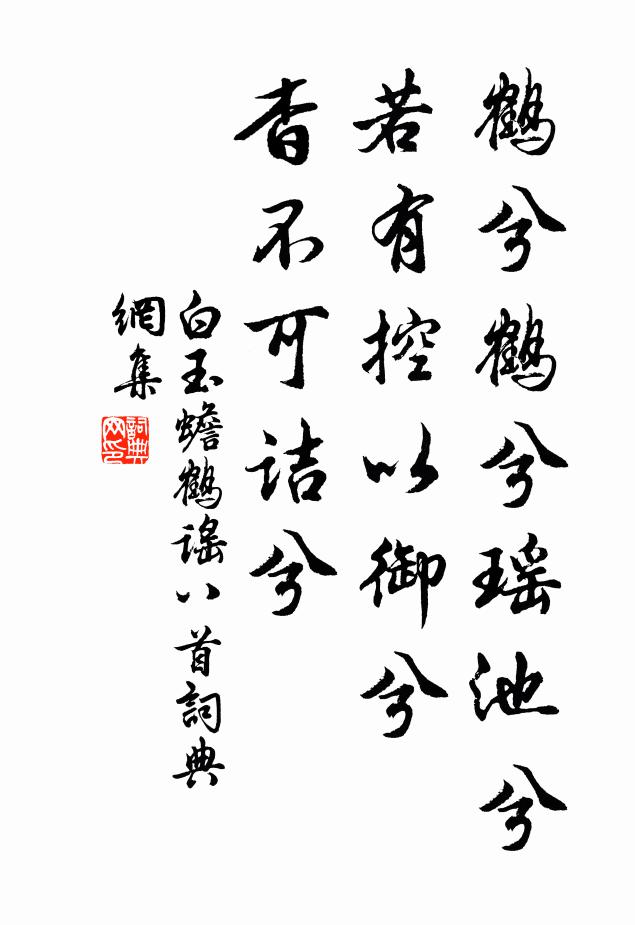 鶴兮鶴兮瑶池兮
若有控以御兮
杳不可詰兮
白玉蟾鶴謠八首詞典
網集
詞典
网印